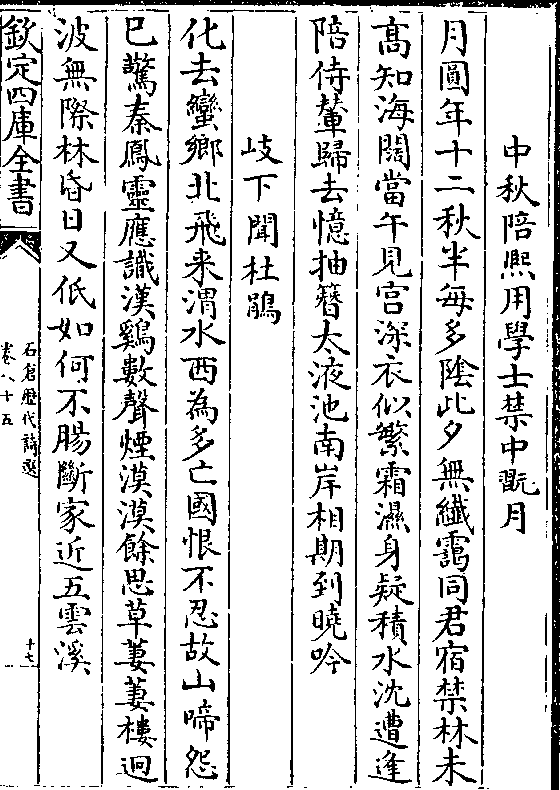 中秋陪熈用學士禁中翫月
月圓年十二秋半每多陰此夕無纖靄同君宿禁林未
髙知海闊當午見宫深衣似繁霜濕身疑積水沈遭逢
陪侍輦歸去憶抽簮太液池南岸相期到曉吟
岐下聞杜鵑
化去蠻鄉北飛来渭水西為多亡國恨不忍故山啼怨
已驚秦鳳靈應識漢鷄數聲煙漠漠餘思草萋萋樓迥
波無際林昏日又低如何不腸斷家近五雲溪
欽定四庫全書
石倉歴代詩選
卷八十五
十七